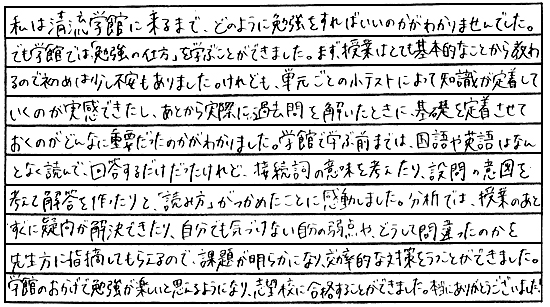 私は清流学館に来るまで、どのように勉強をすればいいのかがわかりませんでした。
でも学館では「勉強の仕方」を学ぶことができました。まず、授業はとても基本的なことから教わ
るので初めは少し不安もありました。けれども、単元ごとの小テストによって知識が定着して
いくのが実感できたし、あとから実際に過去問を解いたときに、基礎を定着させて
おくのがどんなに重要だったのかがわかりました。学館で学ぶ前までは、国語や英語はなん
となく読んで、回答するだけだったけれど、接続詞の意味を考えたり、設問の意図を
考えて解答を作ったりと、「読み方」がつかめたことに感動しました。分析では、授業のあと
すぐに疑問が解決できたり、自分でも気づけない自分の弱点や、どうして間違ったのかを
先生方に指摘してもらえるので、課題が明らかになり、効率的な対策をうつことができました。
学館のおかげで勉強が楽しいと思えるようになり、志望校に合格することができました。本当にありがとうございました!